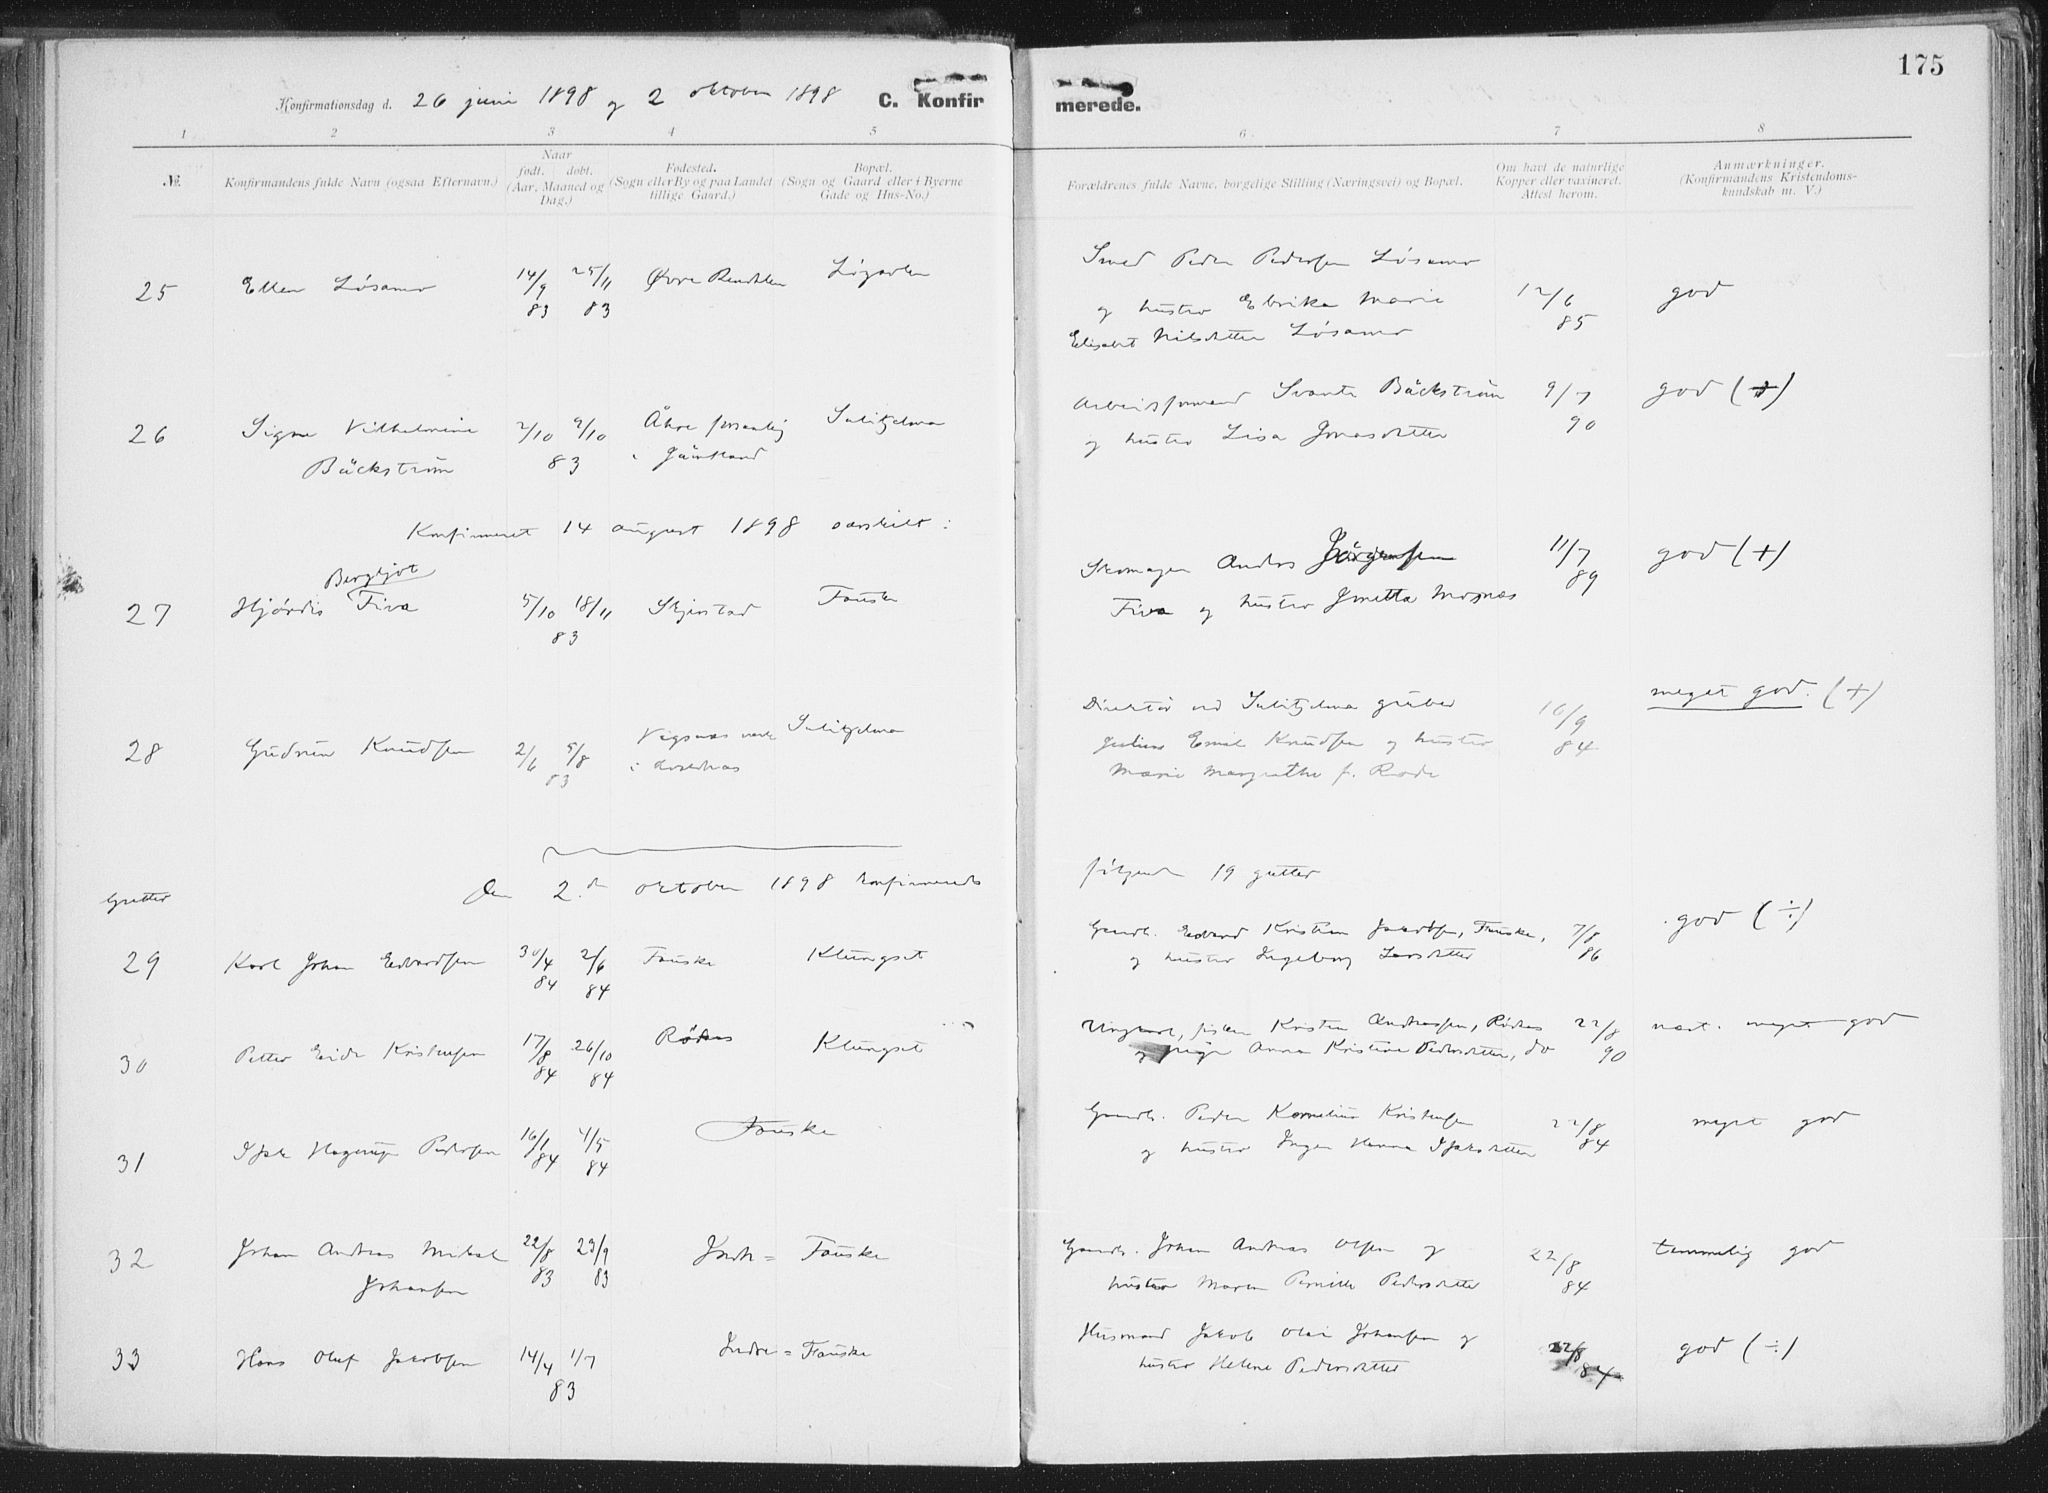 175
Konfirmationsdag d. 26 juni 1898 og 2 oktober 1898 C. Konfirmerede.
1 2 3 4 5 6 7 8
№ Konfirmandens fulde Navn (ogsaa Efternavn.)
Naar født. døbt. (Aar, Maaned og Dag.)
Fødested. (Sogn eller By og paa Landet tillige Gaard.)
Bopæl. (Sogn og Gaard eller i Byerne Gade og Hus-No.)
Forældrenes fulde Navne, borgelige Stilling (Næringsvei) og Bopæl.
Om havt de naturlige Kopper eller vaxineret. Attest herom.
Anmærkninger. (Konfirmandens Kristendomskundskab m. V.)
25 Ellen Løsamo 14/9 83 25/11 83 Øvre Rendalen Smed Peder Pedersen Løsamo 12/6 85 god
og hustru Marie
Elisabet Nilsdatter Løsamo
26 Signe Vilhelmine 2/10 9/10 Åhre Sulitjelma Arbeidsformand Svante Bäckström 9/7 90 god (+)
Bäckström 83 i Jämtland og hustru Lisa Jonasdatter
Konfirmeret 14 august 1898 særskilt:
27 Hjørdis Bergljot Fiva 5/10 18/11 83 Skjerstad Fauske Skomager Anders Jørgensen 11/7 89 god (+)
Fiva og hustru Jonetta Mosnæs
28 Gudrun Knudsen 2/6 5/8 83 Vigsnæs verk Sulitjelma Direktør ved Sulitjelma gruber 16/9 84 meget god. (+)
Julius Emil Knudsen og hustru
Marie Margrethe f. Rode
Gutter Den 2.den oktober 1898 konfirmeredes følgende 19 gutter
29 Karl Johan Edvardsen 30/4 84 2/6 84 Fauske Klungset Gaardb. Edvard Kristian Jakobsen, Fauske, 7/8 86 god (÷)
og hustru Ingeborg Larsdatter
30 Petter Eide Kristensen 17/8 84 26/10 84 Røkns Klungset Ungkarl, fisker Kristen Andreassen, 22/8 90 næst. meget god
og pige Anna Kristine Pedersdatter, do
31 Isak Hagerup Pedersen 16/1 84 4/5 84 Fauske Gaardb. Peder Kornelius Kristensen 22/8 84 meget god
og hustru Inger Hanna Isaksdatter
32 Johan Andreas Mikal 22/8 83 23/9 83 Indre = Fauske Gaardb. Johan Andreas Olsen og 22/8 84 temmelig god
Johansen hustru Maren Pernille Pedersdatter
33 Hans Oluf Jakobsen 14/4 1/7 83 Indre = Fauske Husmand Jakob Olai Johansen og 22/8 84 god (÷)
hustru Helene Pedersdatter